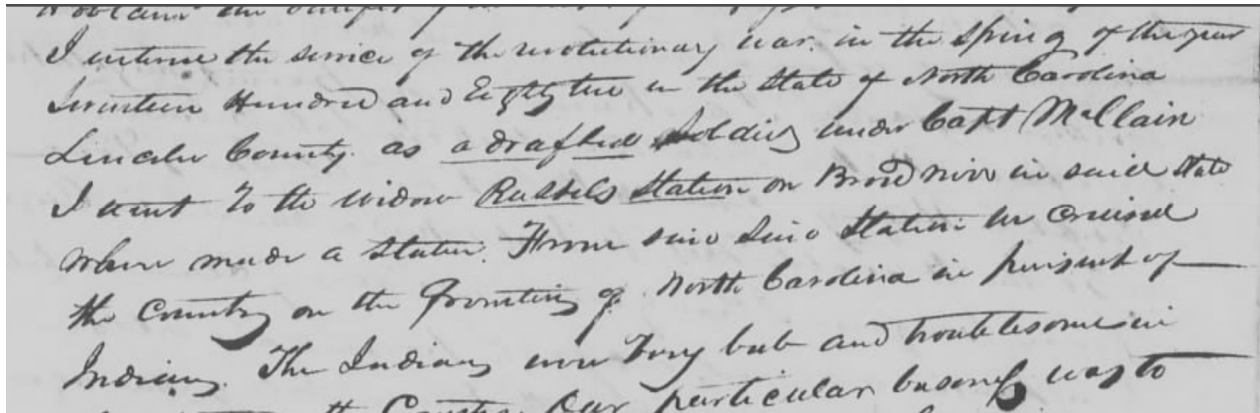 I enterd the service of the revolutionary war. in the Spring of the year
Seventeen Hundred and Eighty two in the State of North Carolina
Lincoln County. as a drafted Soldier under Capt McClain
I went to the widow Russels Station on Broad river in said State
where made a Station. From said Station we cruised
the Country on the fronting of North Carolina in pursuit of
Indians. The Indians were very bad and troublesome in
the Country. Our particular business was to